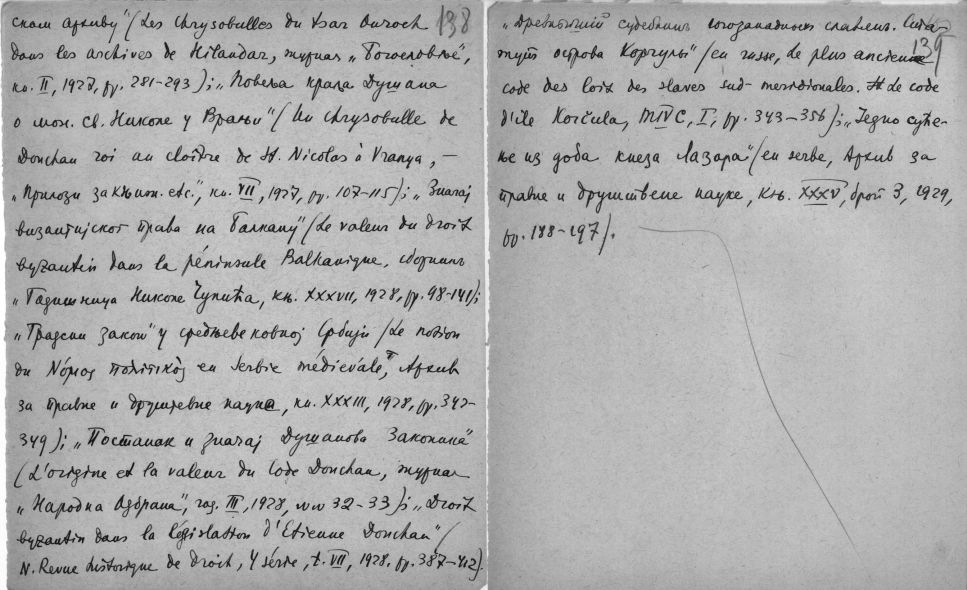 ском архиву" (Les Chrysobulles du tsar Ouroch 138
dans les archives de Hilandar, журнал „Богословље",
кн. II, 1927, pp. 281-293); „Повеља краља Душана
о мон. св. Николе у Врањи" (Un Chrysobulle de
Douchan roi au cloître de St. Nicolas à Vranya, –
„Прилози за књ. etc.", кн. VII, 1927, pp. 107-115); „Значај
византијског права на Балкану" (Le valeur du droit
byzantin dans la péninsule Balkanique, сборник
„Годишњица Николе Чупића, књ. XXXVII, 1928, pp. 98-141);
„Градски закон" у средњевековној Србији (Le notion
du Νόμος πολιτικὸς en Serbie médiévale, Архив
за правне и друштвене науке, кн. XXXIII, 1928, pp. 342-
349); „Постанак и значај Душанова Законика"
(L'origine et la valeur du Code Douchan, журнал
„Народна Одбрана", год. III, 1928, NN 32-33); „Droit
byzantin dans la législation d'Etienne Douchan" (
N. Revue historique de droit, 4 série, t. VII, 1928, pp. 387-412).
„Древнейший судебник югозападных славян. Ста-
тут острова Корчулы" (en russe, Le plus ancienne 139
code des lois des slaves sud-meridionales. Le code
d'ile Korčula, I, pp. 343-356); „Једно суђе-
ње из доба кнеза Лазара" (en serbe, Архив за
правне и друштвене науке, књ. XXXV, број 3, 1929,
pp. 188-197).